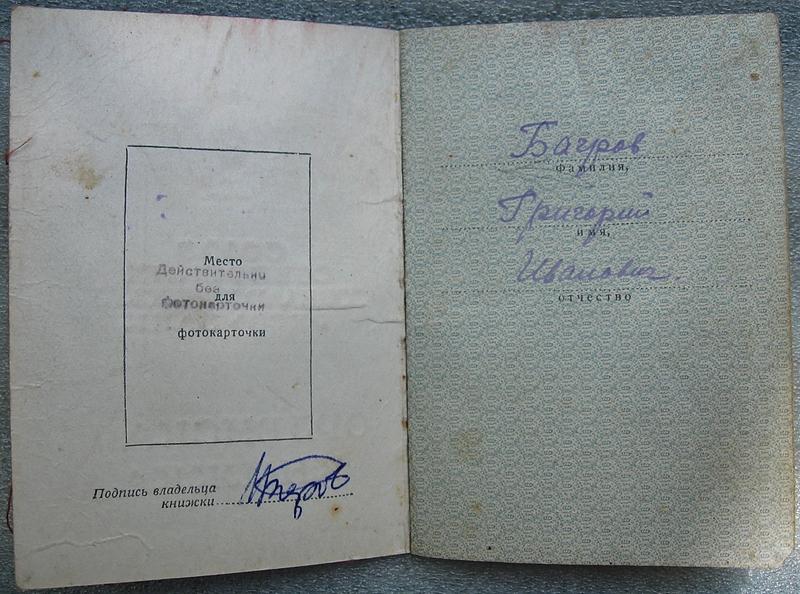 Место
Действительна
без
для
фотокарточки
фотокарточки
Подпись владельца
книжки
Багров
фамилия,
Григорий
имя,
Иванович.
отчество